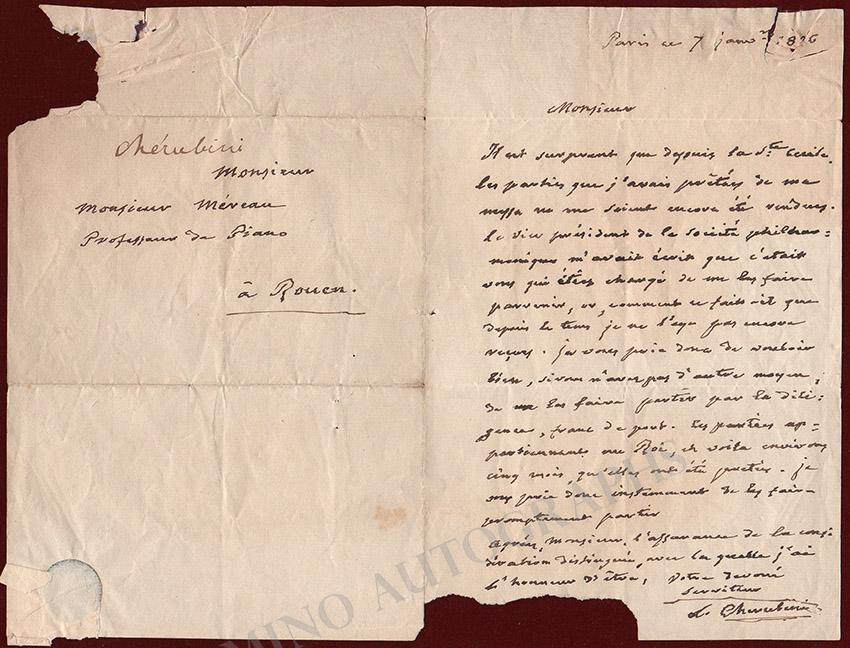 Chérubini
Monsieur
Monsieur Méreau
Professeur de Piano
à Rouen.
Paris ce 7 janvr 1826
Monsieur
Il est surprenant que depuis la Ste Cécile,
les parties que j'avais prêtées de ma
messe ne me soient encore été rendues.
Le vice président de la Société philhar=
monique m'avait écrit que c'était
vous qui étiez chargé de me les faire
parvenir, or, comment se fait-il que
depuis le tems je ne l'aye pas encore
reçues. je vous prie donc de vouloir
bien, si vous n'avez pas d'autre moyen,
de me les faire partir par la dili=
gence, franc de port. Les parties ap=
partiennent au Roi, et voila environ
cinq mois qu'elles ont été prêtées. je
vous prie donc instamment de les faire
promptement partir
Agréez, Monsieur, l'assurance de la consi=
dération distinguée, avec la quelle j'ai
l'honneur d'être, Votre devoué
Serviteur
L. Cherubini
MINO AUTOGRAPHS